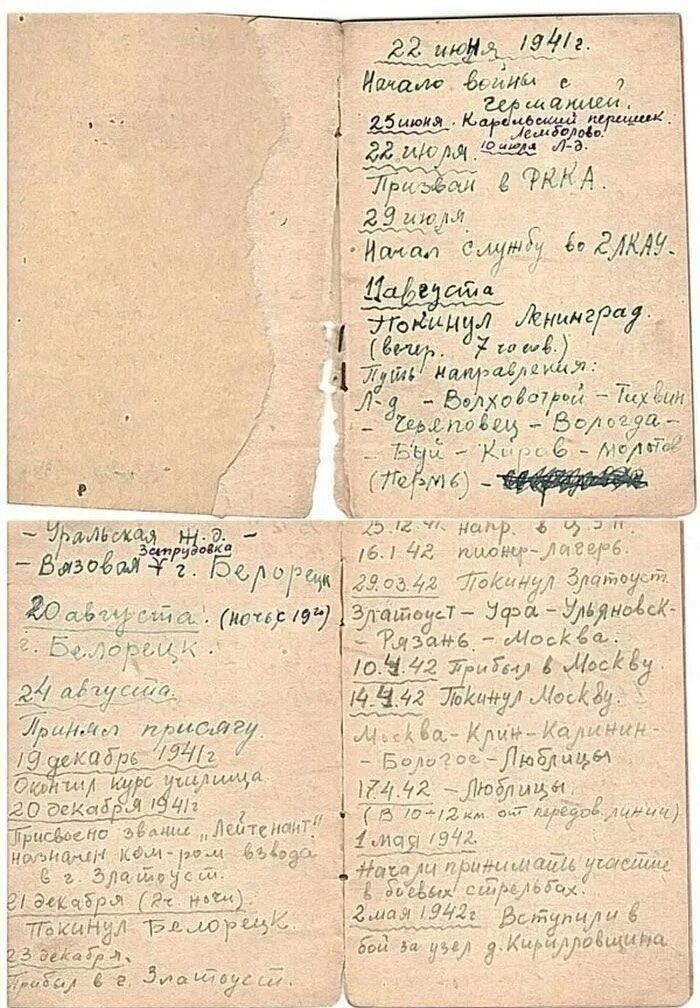 22 июня 1941г.
Начало войны с
Германией.
25 июня. Карельский перешеек.
Лемболово.
22 июля. 10 июля Л-д.
Призван в РККА.
29 июля
Начал службу во 2ЛКАУ-
11 августа
Покинул Ленинград.
(вечер. 7 часов.)
Путь направления:
Л-д - Волховстрой - Тихвин
- Череповец - Вологда -
- Буй - Киров - Молотов
(Пермь) -
- Уральская ж.д. -
Запрудовка
- Вязовая v г. Белорецк
20 августа. (ночь с 19го)
г. Белорецк
24 августа.
Принял присягу.
19 декабрь 1941г
Окончил курс училища.
20 декабря 1941г
Присвоено звание „Лейтенант"
назначен ком-ром взвода
в г. Златоуст.
21 декабря (2ч. ночи).
Покинул Белорецк.
23 декабря.
Прибыл в г. Златоуст.
25.12.41. напр. в
16.1.42 пионер-лагерь.
29.03.42 Покинул Златоуст.
Златоуст - Уфа - Ульяновск -
- Рязань - Москва.
10.4.42 Прибыл в Москву.
14.4.42 Покинул Москву.
Москва - Клин - Калинин -
- Бологое - Люблицы
17.4.42 - Люблицы.
(В 10÷12 км. от передов. линии)
1 мая 1942
Начали принимать участие
в боевых стрельбах.
2 мая 1942г Вступили в
бой за узел д. Кирилловщина